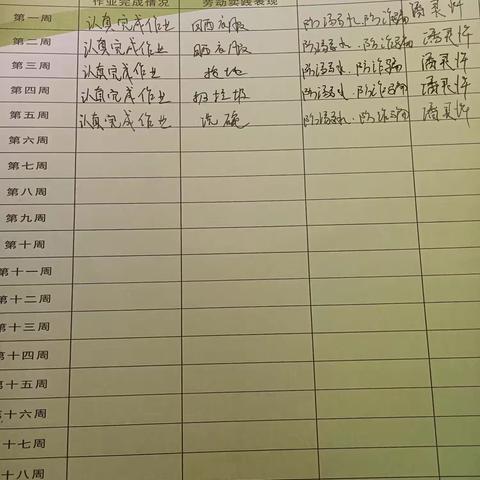 作业完成情况 劳动实践表现
第一周 认真完成作业 晒衣服 防溺水,防诈骗
第二周 认真完成作业 晒衣服 防溺水.防诈骗
第三周 认真完成作业 拖地 防溺水.防诈骗
第四周 认真完成作业 扫垃圾 防溺水.防诈骗
第五周 认真完成作业 洗碗 防溺水.防诈骗
第六周
第七周
第八周
第九周
第十周
第十一周
第十二周
第十三周
第十四周
第十五周
第十六周
十七周
十八周